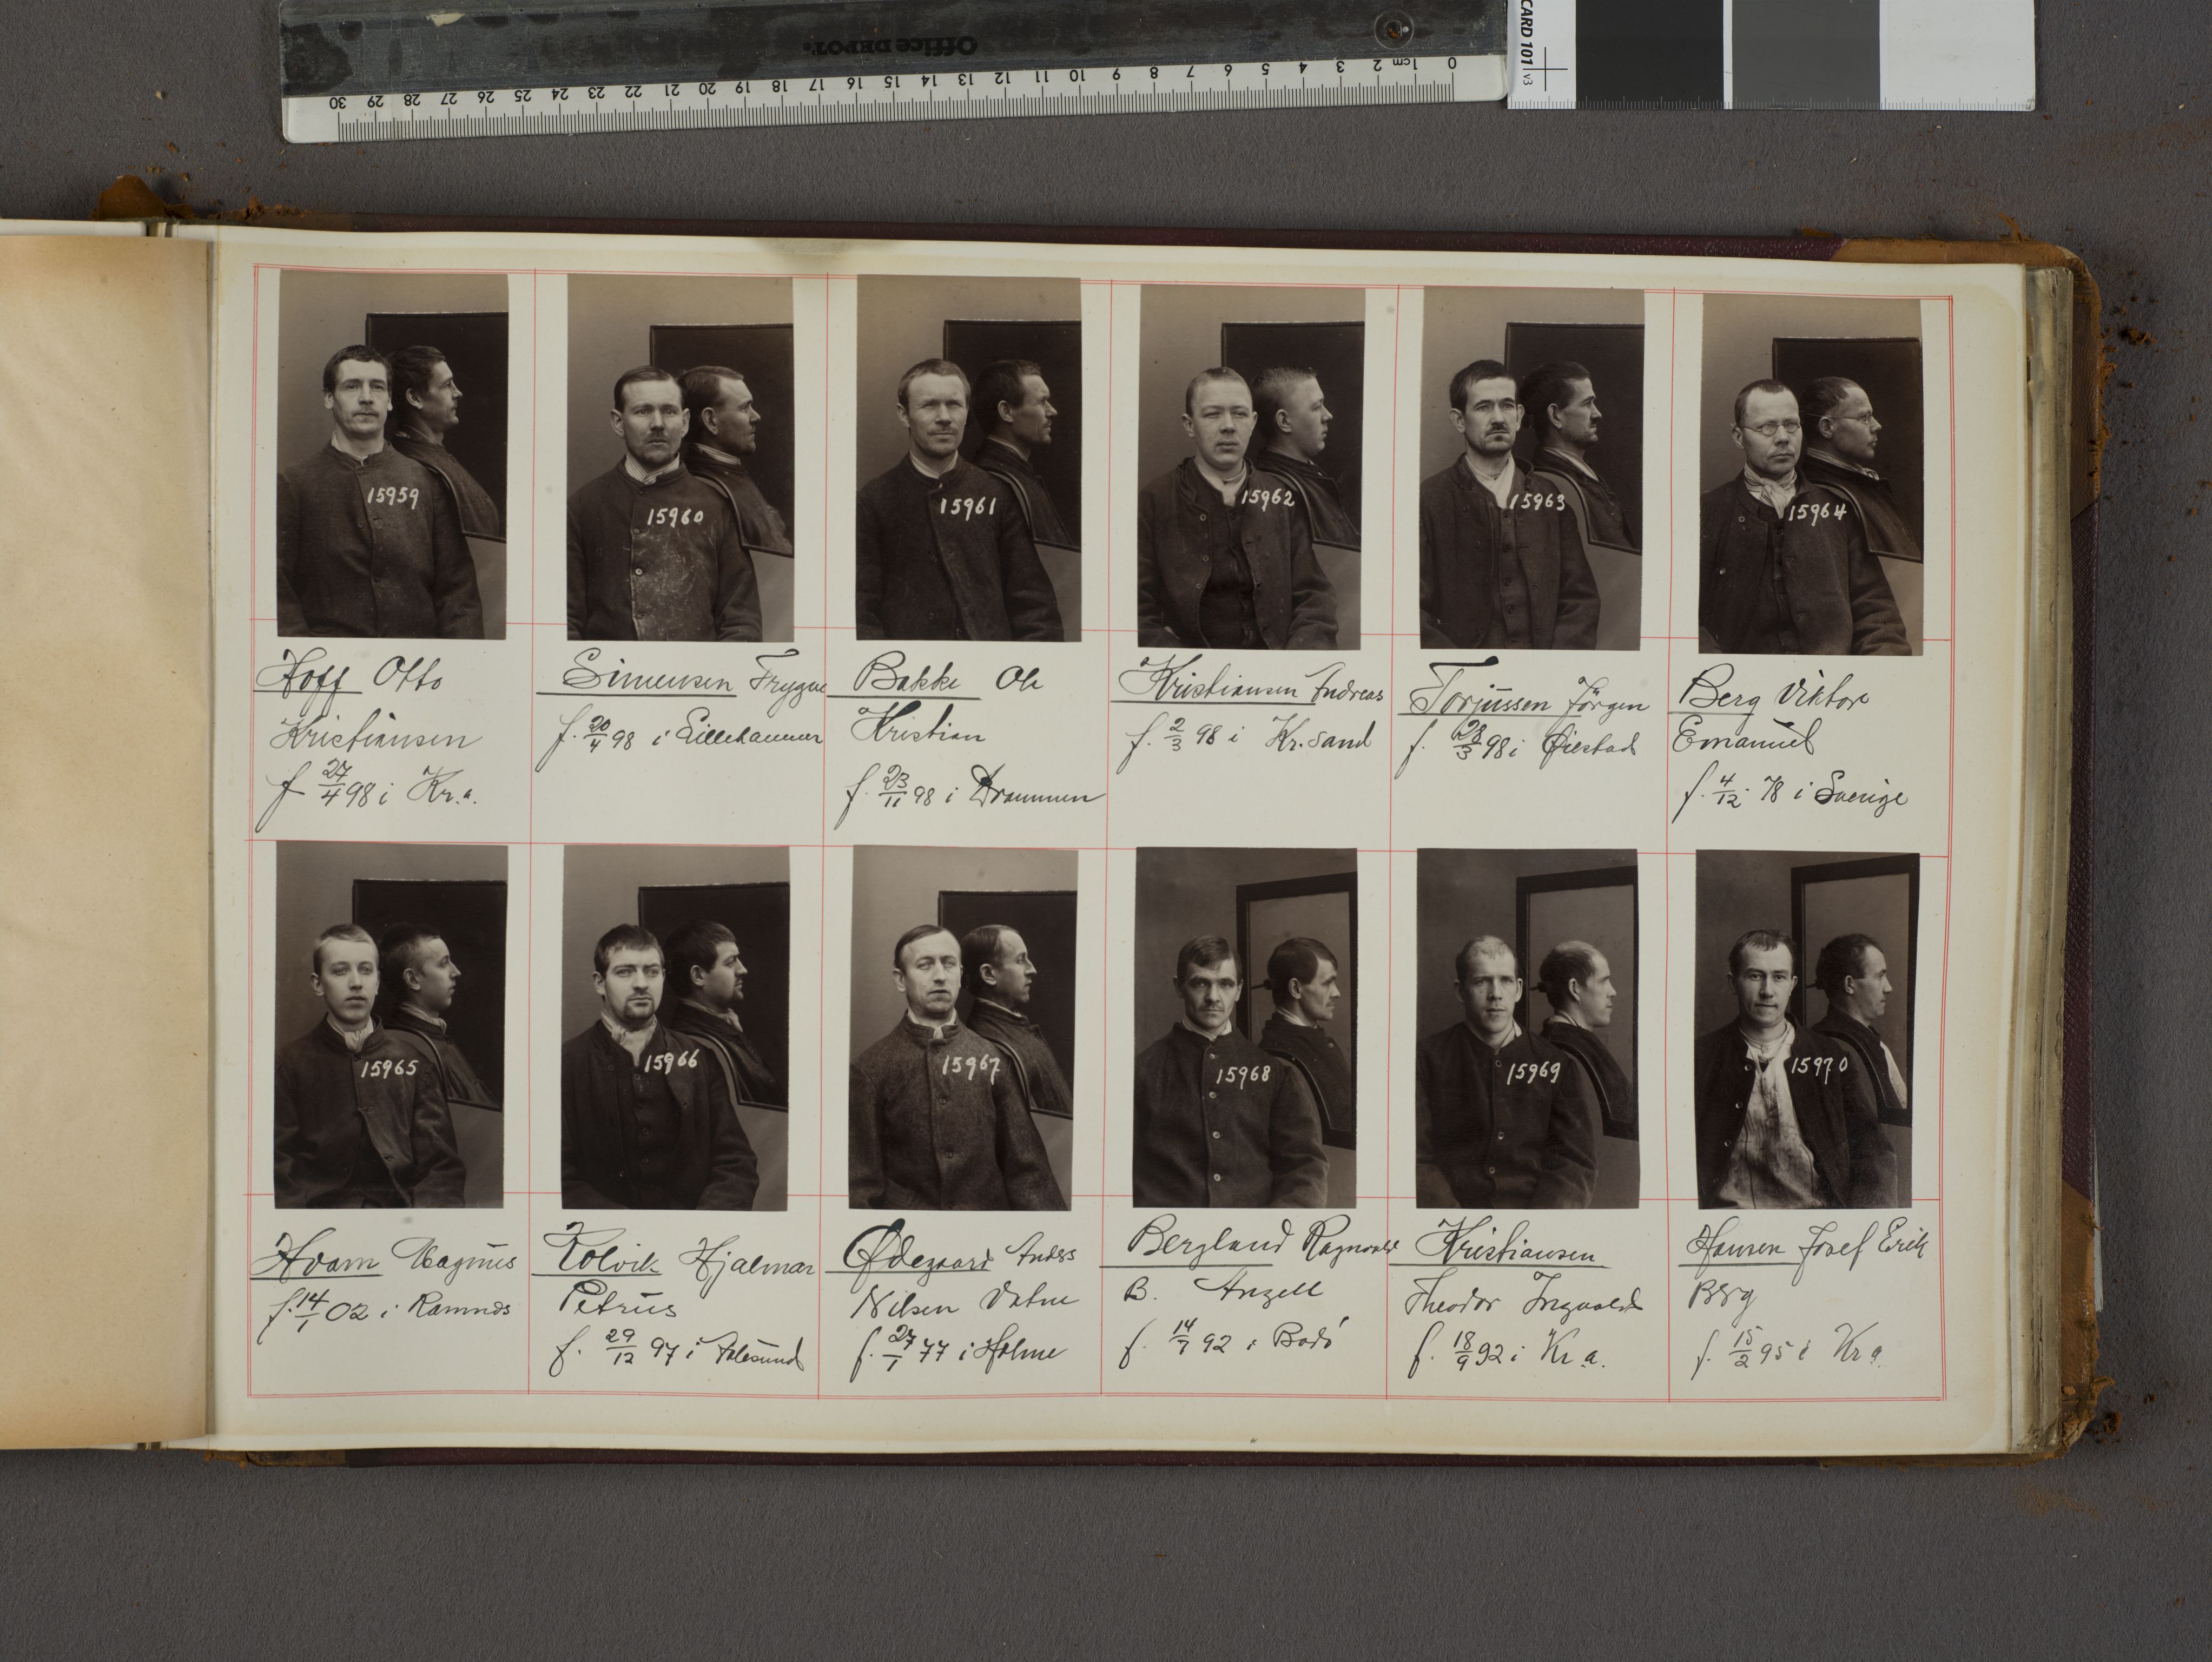 Office DEPOT.
0 1cm 2 3 4 5 6 7 8 9 10 11 12 13 14 15 16 17 18 19 20 21 22 23 24 25 26 27 28 29 30
CARD 101 v3
15959
15960
15961
15962
15963
15964
Hoff Otto
Kristiansen
f 27/4 98 i Kr.a.
Simensen Trygve
f. 20/4 98 i Lillehammer
Bakke Ole
Kristian
f. 23/11 98 i Drammen
Kristiansen Andreas
f. 2/3 98 i Kr.sand
Torjussen Jörgen
f. 28/3 98 i Øiestad
Berg Viktor
Emanuel
f. 4/12 78 i Sverige
15965
15966
15967
15968
15969
15970
Hvam Magnus
f. 14/1 02 i Ramnes
Kolvik Hjalmar
Petrus
f. 29/12 97 i Aalesund
Ødegaard Anders
Nilsen Vatne
f. 27/1 77 i Holme
Bergland Ragnvald
B. Angell
f. 14/7 92 i Bodö
Kristiansen
Theodor Ingvald
f. 18/9 92 i Kr.a.
Hansen Josef Erik
Berg
f. 15/2 95 i Kr a.